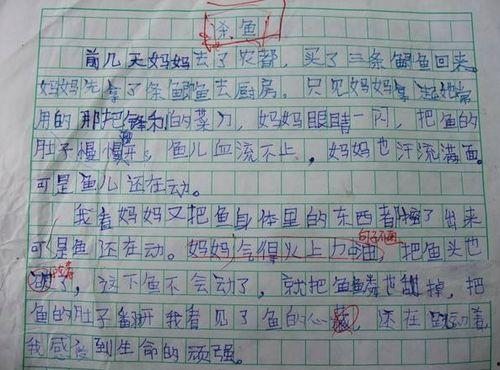 杀鱼
前几天妈妈去了农都,买了三条鲫鱼回来。
妈妈先拿了条鲫鱼去厨房。只见妈妈拿起她常
用的那把锋利的菜刀,妈妈眼睛一闪,把鱼的
肚子慢慢,鱼儿血流不止,妈妈也汗流满面。
可是鱼儿还在动。
我看妈妈又把鱼身体里的东西都了出来
可是鱼还在动。妈妈气得火上力,把鱼头也
了,这下鱼不会动了,就把鱼鱼鳞也掉,把
鱼的肚子翻开我看见了鱼的心,还在动着,
我感到生命的顽强。